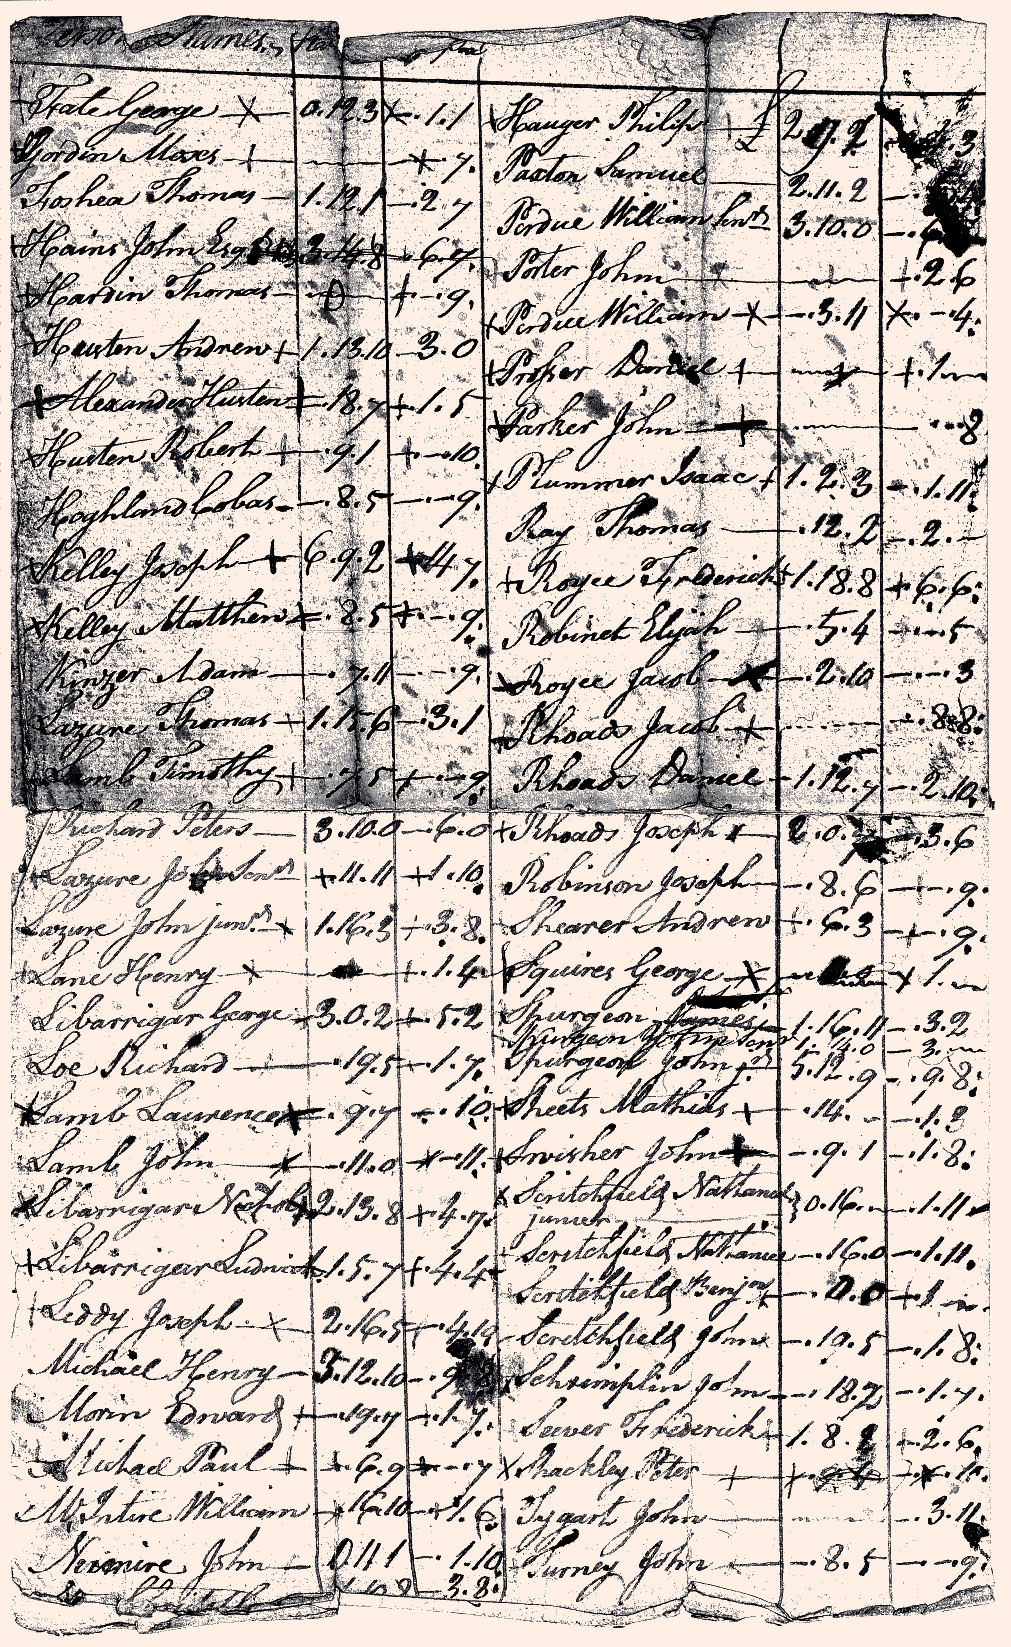 Persons Names
Tate George X 0.12.3 X .1.1
Gordin Moses + — X .7.
Foshea Thomas — 1.12.1 — .2.7
Hains John Esqr 3.14.8 — 6.7.
Hardin Thomas — 0 + — .9.
Husten Andrew + 1.13.10 — 3.0
+ Alexander Husten + .18.7 + .1.5
Husten Robert + — .9.1 + — .10.
Hoghland Cobas — .8.5 — .9.
Kelley Joseph + 6.9.2 + 14 7.
Kelley Matthew + .8.5 + — .9.
Kinzer Adam — .7.11 — .9.
Lazure Thomas + 1.15.6 — 3.1
Lamb Timothy + .7.5 + — .9.
Richard Peters — 3.10.0 — 6.0
+ Lazure John Senr + .11.11 + 1.10.
Lazure John junr. X 1.16.3 + 3.8.
Lane Henry X — + .1.4
Libarrigar George — 3.0.2 + .5.2
Loe Richard — .19.5 — .1.7.
X Lamb Laurence X .9.7 — .10.
Lamb John — X — .11.0 X — 11.
X Libarrigar Nichols 2.13.8 + 4.7.
+ Libarrigar Ludwick 1.5.7 + 4.4
Leddy Joseph X 2.16.5 — .4.10
Michael Henry — 5.12.10 — .9
Morin Edward + — .19.7 — .1.7.
Michael Paul + + .6.9 X — .7
McIntire William — .16.10 + 1.6.
Nevmire John — 0.11.1 — .1.10.
3.8.
Hauger Philip — £ 2.9.2 3
Paxton Samuel — 2.11.2 —
Perdue William Senr 3.10.0 —
Porter John X — + .2.6
+ Perdue William X — .3.11 X — .4.
+ Proper Daniel + — + .1 —
Parker John + — .8
+ Plummer Isaac + 1.2.3 — .1.11.
Ray Thomas — .12.2 — .2.—
+ Royce Frederick + 1.18.8 + 6.6.
Robinet Elijah — .5.4 — .5
Royce Jacob X — .2.10 — .3
Rhoads Jacob X — .8.8.
Rhoads Daniel — 1.12.7 — .2.10.
+ Rhoads Joseph X 2.0. — .3.6
Robinson Joseph — .8.6 — + — .9.
Shearer Andrew + .6.3 — + — .9.
Squires George X — X 1. —
Spurgeon James 1.16.11 — .3.2
Spurgeon John Senr 1.14.0 — 3. —
Spurgeon John jr 5.12.9 — .9.8.
Sheets Mathias X .14. — — .1.3
Swisher John + — .9.1 — .1.8.
X Scritchfield Nathaniel
junier 0.16. — .1.11
Scritchfield Nathaniel — .16.0 — .1.11.
Scritchfield Benjn — .0.0 + .1 —
Scritchfield John — .19.5 — .1.8.
Schrimplin John — .18.2 — .1.7.
Seever Frederick — 1.8.2 — .2.6.
X Shackley Peter + X .10.
Tygart John — .3.11.
Turney John — .8.5 — .9.